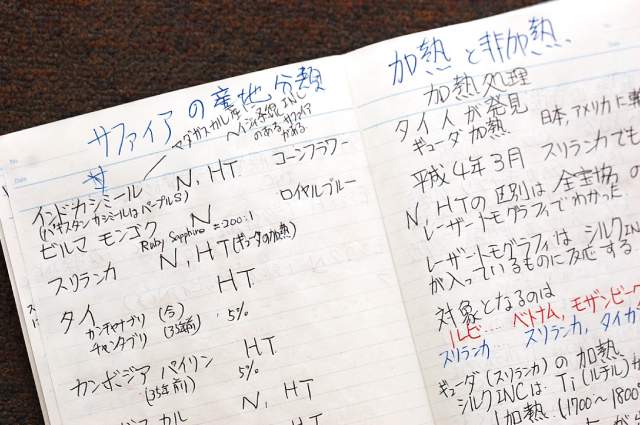 サファイアの産地分類
マダガスカル産
ヘイジ状シルクINC
のあるサファイア
がある
インドカシミール N, HT コーンフラワー
(パキスタンカシミールはパープルS)
ビルマ モンゴク N ロイヤルブルー
Ruby Sapphire =200:1
スリランカ N, HT (ギューダの加熱)
タイ HT
カンチャナブリ (今) 5%
チャンタブリ (35年前)
カンボジア パイリン HT
(35年前) 5%
N, HT
HT
加熱と非加熱
加熱処理
タイ人が発見
ギューダ加熱 日本,アメリカに
平成4年3月 スリランカでも
N, HTの区別は全宝協の
レーザートモグラフィでわかった
レーザートモグラフィは シルクINC
が入っているものに反応する
対象となるのは
ルビー… ベトナム, モザンビーク
スリランカ スリランカ, タイ
ギューダ(スリランカ)の加熱
シルクINCは Ti(ルチル)
加熱 (1700〜1800